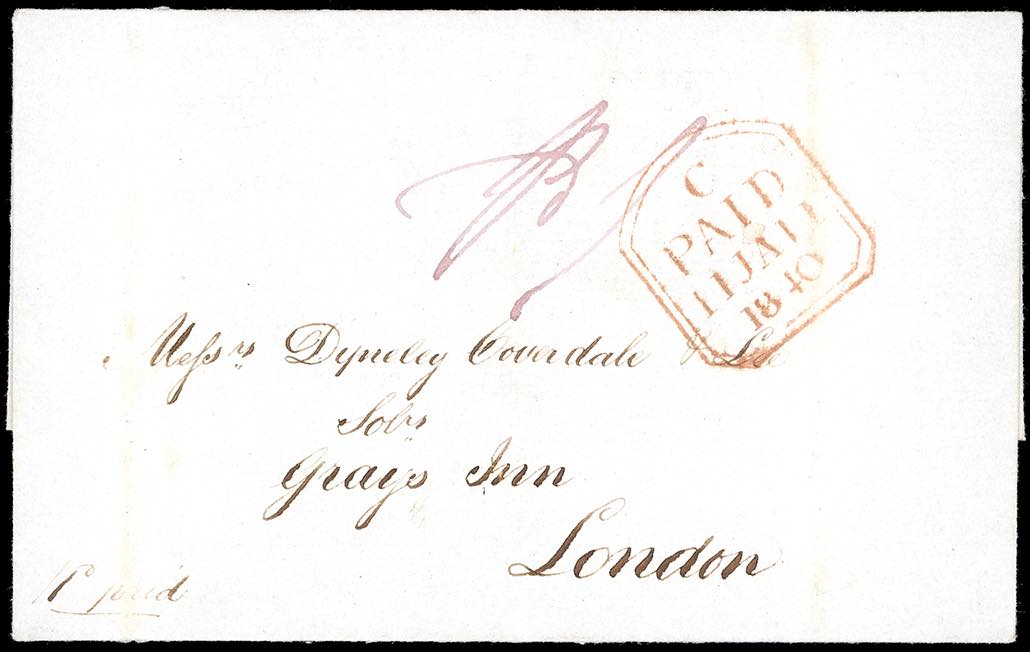 C
PAID
11JA11
1840
Messrs Dyneley Coverdale & Lee
Solrs
Grays Inn
London
Pp paid